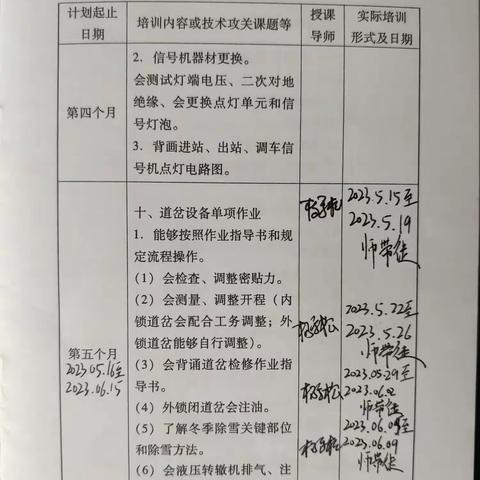 计划起止
日期
培训内容或技术攻关课题等
授课
导师
实际培训
形式及日期
第四个月
2. 信号机器材更换。
会测试灯端电压、二次对地
绝缘、会更换点灯单元和信
号灯泡。
3. 背画进站、出站、调车信
号机点灯电路图。
第五个月
2023.05.16至
2023.06.15
十、道岔设备单项作业
1. 能够按照作业指导书和规
定流程操作。
(1) 会检查、调整密贴力。
(2) 会测量、调整开程（内
锁道岔会配合工务调整；外
锁道岔能够自行调整）。
(3) 会背诵道岔检修作业指
导书。
(4) 外锁闭道岔会注油。
(5) 了解冬季除雪关键部位
和除雪方法。
(6) 会液压转辙机排气、注
2023.5.15至
2023.5.19
师带徒
2023.5.22至
2023.5.26
师带徒
2023.05.29至
2023.06.2
师带徒
2023.06.05至
2023.06.09
师带徒